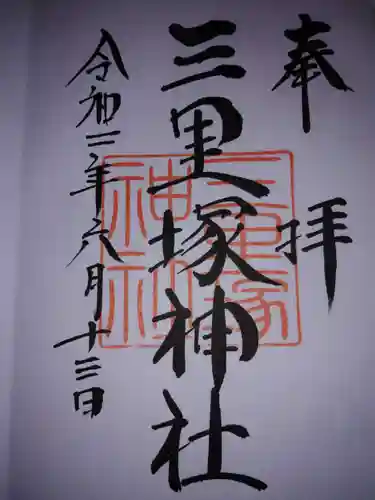 奉拝
三里塚神社
三里塚神社
令和二年六月十三日